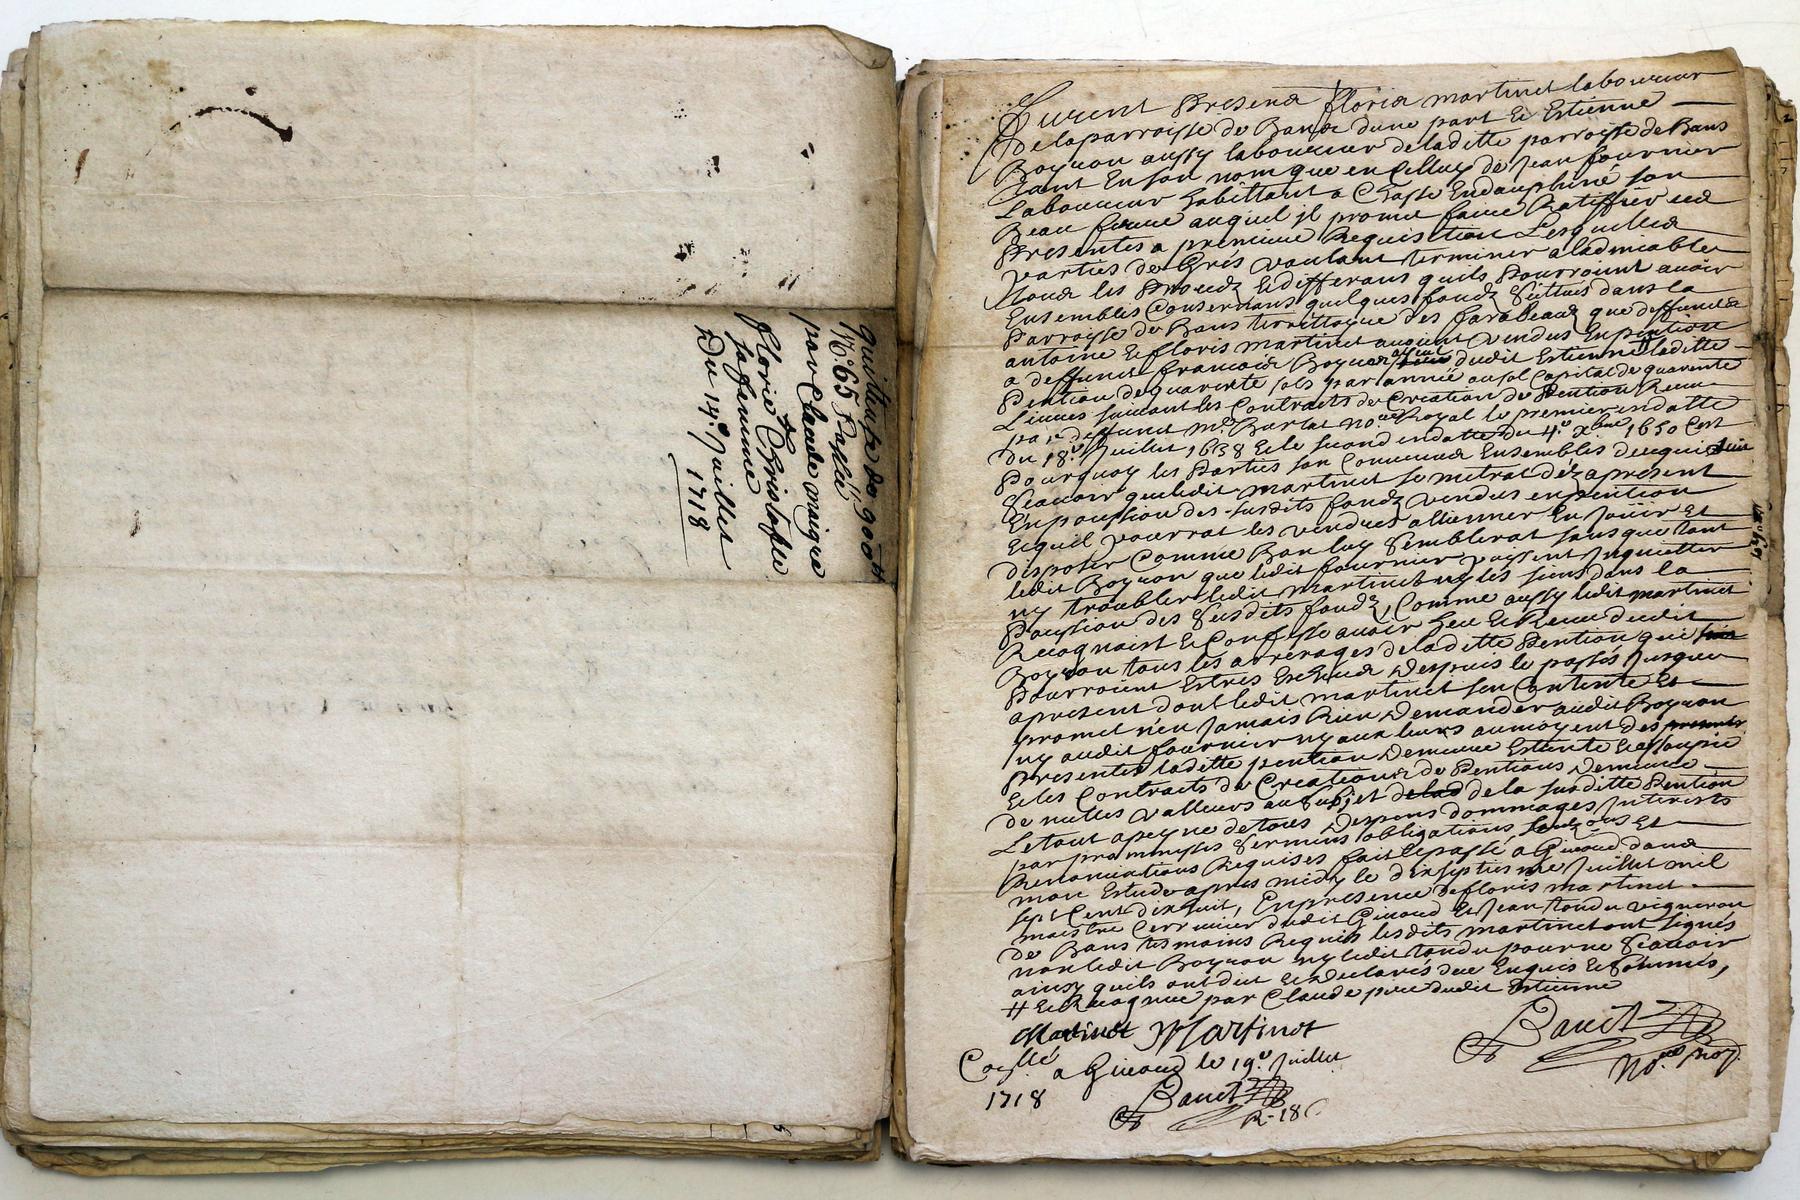 quittance de 900 ₶
1765 Passée
par Claude maigre
& Christophle
florie
sa femme
Du 14e Juillet
1718
Furent Presens floris martinet laboureur
De la parroisse de Bans dune part Et Estienne
Boyron aussy laboureur de laditte parroisse de Bans
tant En son nom que en Celluy de Jean fournier
Laboureur habittant a Chasse En dauphiné son
Beau frere auquel jl promet faire Ratiffier ces
Presentes a premiere Requisition Lesquelles
parties de Gré voulant terminer a ladmiable
tous les Procedz & differans quils Pourroient avoir
Ensembles Consernans quelques fondz scittues dans la
Parroisse de Bans territtoire des farabeaux que deffuncts
antoine & floris martinet auoient vendus En pention
a deffunct francois Boyron dudit Estienne laditte
Pention de quarente sols par année au sol Capital de quarente
Liures suiuant les Contracts de Creation de Pention Receu
par deffunct Me Barlat nore Royal le premier en datte
du 18e Juillet 1638 & le second en datte du 4e xbre 1650 Cest
Pourquoy les Parties son Conuenues Ensembles de ce qui suit
Scauoir que ledit martinet se metrat dez apresent
En possession des susdits fondz vendus en pention
Lequel pourrat les vendres alliener En Jouir Et
disposer Comme Bon luy semblerat sans que tant
ledit Boyron que ledit fournier puissent Inquietter
ny troubler ledit martinet ny les siens dans la
Possession des susdits fondz, Comme aussy ledit martinet
Recognoist & Confesse auoir heu & Receu dudit
Boyron tous les arrerages de laditte Pention qui
Pourroient Estres Escheus Despuis le passés Jusques
apresent dont ledit martinet sen Contente Et
promet nen Jamais Rien Demander audit Boyron
ny audit fournier ny aux leurs au moyent des presentes
Presentes laditte pention Demeure Esteinte & assoupie
& les Contracts de Creations de Pentions Demeure
de nulles valleurs au subjet delad de la susditte Pention
Le tout a peyne de tous Despens dommages Interests
par promesses sermens obligations Et
Renonciations Requises fait & passé a Giuord dans
mon Estude apres midy le dixseptieme Juillet mil
sept Cent dix huit, En presence de floris martinet
maistre dudit Giuord & Jean tondu vigneron
de Bans tesmoins Requis lesdits martinet ont signés
non ledit Boyron ny ledit tondu pour ne scauoir
ainsy quils ont dit & Declarés de ce Enquis & sommés,
# & Recognue par Claude pere dudit Estienne
Martinet Martinot
Banet
Nore Roy.
Coллé a Giuord le 19e Juillet
1718
Banet
R-18